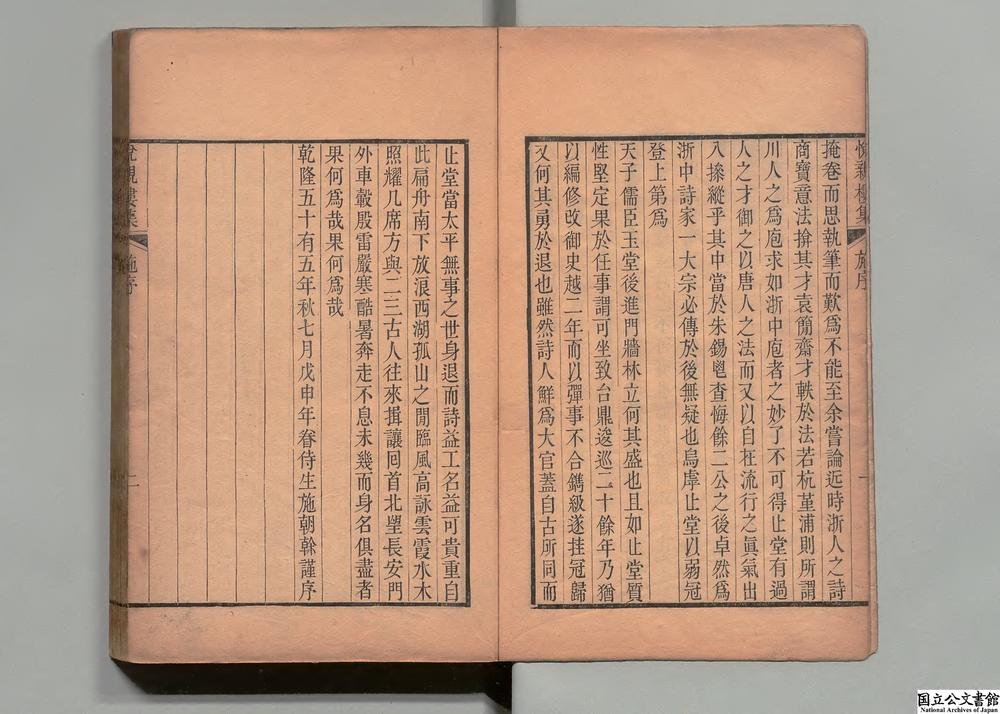 掩卷而思執筆而歎爲不能至余嘗論近時浙人之詩
商寶意法揜其才袁簡齋才軼於法若杭堇浦則所謂
川人之爲庖求如浙中庖者之妙了不可得止堂有過
人之才御之以唐人之法而又以自在流行之眞氣出
入操縱乎其中當於朱錫鬯查悔餘二公之後卓然爲
浙中詩家一大宗必傳於後無疑也烏虖止堂以弱冠
登上第爲
天子儒臣玉堂後進門牆林立何其盛也且如止堂質
性堅定果於任事謂可坐致台鼎逡巡二十餘年乃猶
以編修改御史越二年而以彈事不合鐫級遂挂冠歸
又何其勇於退也雖然詩人鮮爲大官蓋自古所同而
施序
一
止堂當太平無事之世身退而詩益工名益可貴重自
此扁舟南下放浪西湖孤山之閒臨風高詠雲霞水木
照耀几席方與二三古人往來揖讓回首北望長安門
外車轂殷雷嚴寒酷暑奔走不息未幾而身名俱盡者
果何爲哉果何爲哉
乾隆五十有五年秋七月戊申年眷侍生施朝榦謹序
施序
二
国立公文書館
National Archives of Japan